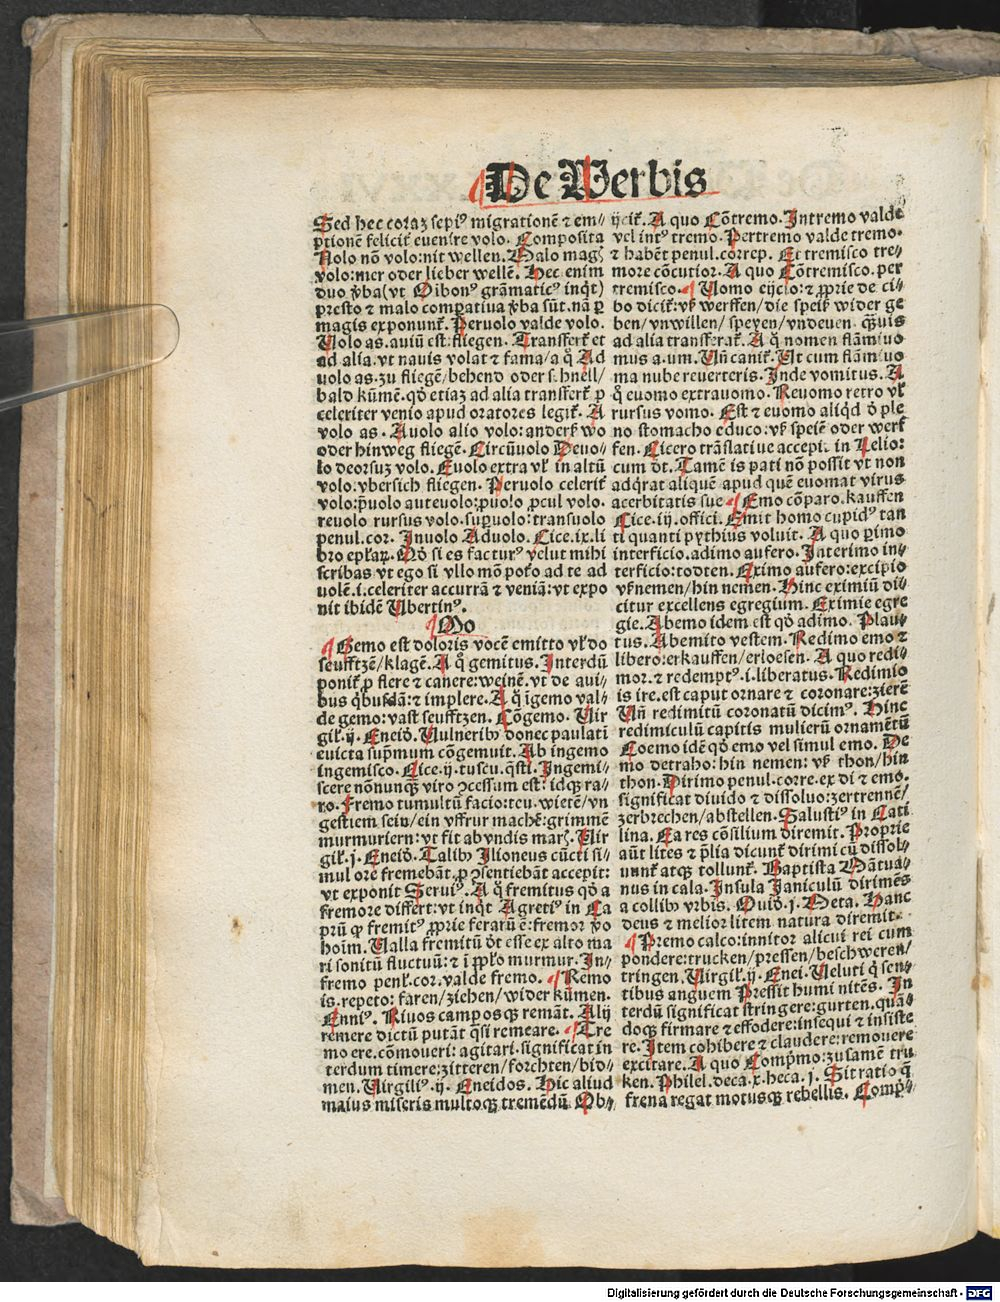 De Verbis
Sed hec coraz sepiꝰ migrationē ⁊ em⸗
ptionē felicit̃ euenire volo. Composita
Nolo nō volo: nit wellen. Malo magꝭ
volo: mer oder lieber wellē. Hec enim
duo v̄ba (vt Gibonꝰ grāmaticꝰ inq̇t)
presto ⁊ malo comꝑatiua v̄ba sūt. nā ꝑ
magis exponunt̃. Peruolo valde volo.
Uolo as. auiū est: fliegen. Transfert̃ et
ad alia. vt nauis volat ⁊ fama / a q̊ Ad
uolo as. zu fliegē / behend oder schnell /
bald kūmē. qđ etiaz ad alia transfert̃ ꝑ
celeriter venio apud oratores legit̃. A
volo as. Auolo alio volo: anderß wo
oder hinweg fliegē. Circūuolo Deuo⸗
lo deorsuz volo. Euolo extra vl̃ in altū
volo: vbersich fliegen. Peruolo celerit̃
volo: p̄uolo anteuolo: ꝓuolo ꝓcul volo.
reuolo rursus volo. suꝑuolo: transuolo
penul. cor. Inuolo Aduolo. Cice. ix. li
bro ep̄laꝝ. Qđ si es facturꝰ velut mihi
scribas vt ego si vllo mō poťo ad te ad
uolē .i. celeriter accurrā ⁊ veniā: vt expo
nit ibidē Ubertinꝰ.
¶ Mo
¶ Gemo est doloris vocē emitto vl̃ do
seufftzē / klagē. A q̊ gemitus. Interdū
ponit̃ ꝓ flere ⁊ canere: weinē. vt de aui⸗
bus q̇busdā: ⁊ implere. A q̊ īgemo val⸗
de gemo: vast seufftzen. Cōgemo. Uir
gil̃. ij. Eneiđ. Uulneribꝫ donec paulati
euicta sup̄mum cōgemuit. Ab ingemo
ingemisco. Cice. ij. tuscu. q̄sti. Ingemi⸗
scere nōnunqꝫ viro ↄcessum est: idqꝫ ra⸗
ro. Fremo tumultū facio: teu. wietē / vn
gestiem sein / ein vffrur machē: grimmē
murmuriern: vt fit ab vndis marꝭ. Uir
gil̃. j. Eneiđ. Talibꝫ Ilioneus cūcti si⸗
mul ore fremebāt. ꝓ ↄsentiebāt accepit:
vt exponit Seruiꝰ. A q̊ fremitus qđ a
fremore differt: vt inq̇t Agretiꝰ in Ca
prū ꝙ fremitꝰ ꝓprie ferarū ē: fremor v̄o
hoīm. Ualla fremitū đt esse ex alto ma
ri sonitū fluctuū: ⁊ ī pp̄lo murmur. In⸗
fremo penl̃. cor. valde fremo. ¶ Remo
is. repeto: faren / ziehen / wider kūmen.
Enniꝰ. Riuos camposqꝫ remāt. Alij
remere dictū putāt q̄si remeare. ¶ Tre
mo ere. cōmoueri: agitari. significat in
terdum timere: zitteren / forchten / bid⸗
men. Uirgiliꝰ. ij. Eneidos. Hic aliud
maius miseris multoqꝫ tremēdū Ob⸗
ijcit̃. A quo Cōtremo. Intremo valde
vel intꝰ tremo. Pertremo valde tremo.
⁊ habēt penul. correp. Et tremisco tre⸗
more cōcutior. A quo Cōtremisco. per
tremisco. ¶ Uomo eijcio: ⁊ ꝓprie de ci⸗
bo dicit̃: vß werffen / die speiß wider ge
ben / vnwillen / speyen / vndeuen. quāuis
ad alia transferat̃. A q̊ nomen flāmiuo
mus a. um. Un̄ canit̃. Ut cum flāmiuo
ma nube reuerteris. Inde vomitus. A
q̊ euomo extrauomo. Reuomo retro vl̃
rursus vomo. Est ⁊ euomo aliq̇d đ ple
no stomacho educo: vß speiē oder werf
fen. Cicero trāslatiue accepit. in Lelio:
cum đt. Tamē is pati nō possit vt non
adq̇rat aliquē apud quē euomat virus
acerbitatis sue ¶ Emo cōparo. kauffen
Cice. iij. offici. Emit homo cupidꝰ tan
ti quanti pythius voluit. A quo ꝑimo
interficio. adimo aufero. Interimo in⸗
terficio: todten. Eximo aufero: excipio
vßnemen / hin nemen. Hinc eximiū di⸗
citur excellens egregium. Eximie egre
gie. Abemo idem est qđ adimo. Plau⸗
tus. Abemito vestem. Redimo emo ⁊
libero: erkauffen / erloesen. A quo redi⸗
mor. ⁊ redemptꝰ .i. liberatus. Redimio
is ire. est caput ornare ⁊ coronare: zierē
Un̄ redimitū coronatū dicimꝰ. Hinc
redimiculū capitis mulierū ornamētū
Coemo idē qđ emo vel simul emo. De
mo detraho: hin nemen: vß thon / hin
thon. Dirimo penul. corre. ex di ⁊ emo.
significat diuido ⁊ dissoluo: zertrennē /
zerbrechen / abstellen. Salustiꝰ in Cati
lina. Ea res cōsilium diremit. Proprie
aūt lites ⁊ p̄lia dicunt̃ dirimi cū dissol⸗
uunt̃ atqꝫ tollunt̃. Baptista Mātua⸗
nus in cala. Insula Janiculū dirimēs
a collibꝫ vrbis. Ouiđ. j. Meta. Hanc
deus ⁊ melior litem natura diremit.
¶ Premo calco: innitor alicui rei cum
pondere: trucken / pressen / beschweren /
tringen. Uirgil̃. ij. Enei. Ueluti q̇ sen⸗
tibus anguem Pressit humi nitēs. In
terdū significat stringere: gurten. quā⸗
doqꝫ firmare ⁊ effodere: insequi ⁊ insiste
re. Item cohibere ⁊ claudere: remouere
excitare. A quo Comp̄mo: zusamē tru
ken. Philel. deca. x. heca. j. Sit ratio q̄
frena regat motusqꝫ rebellis. Comp̄⸗
Digitalisierung gefördert durch die Deutsche Forschungsgemeinschaft - DFG